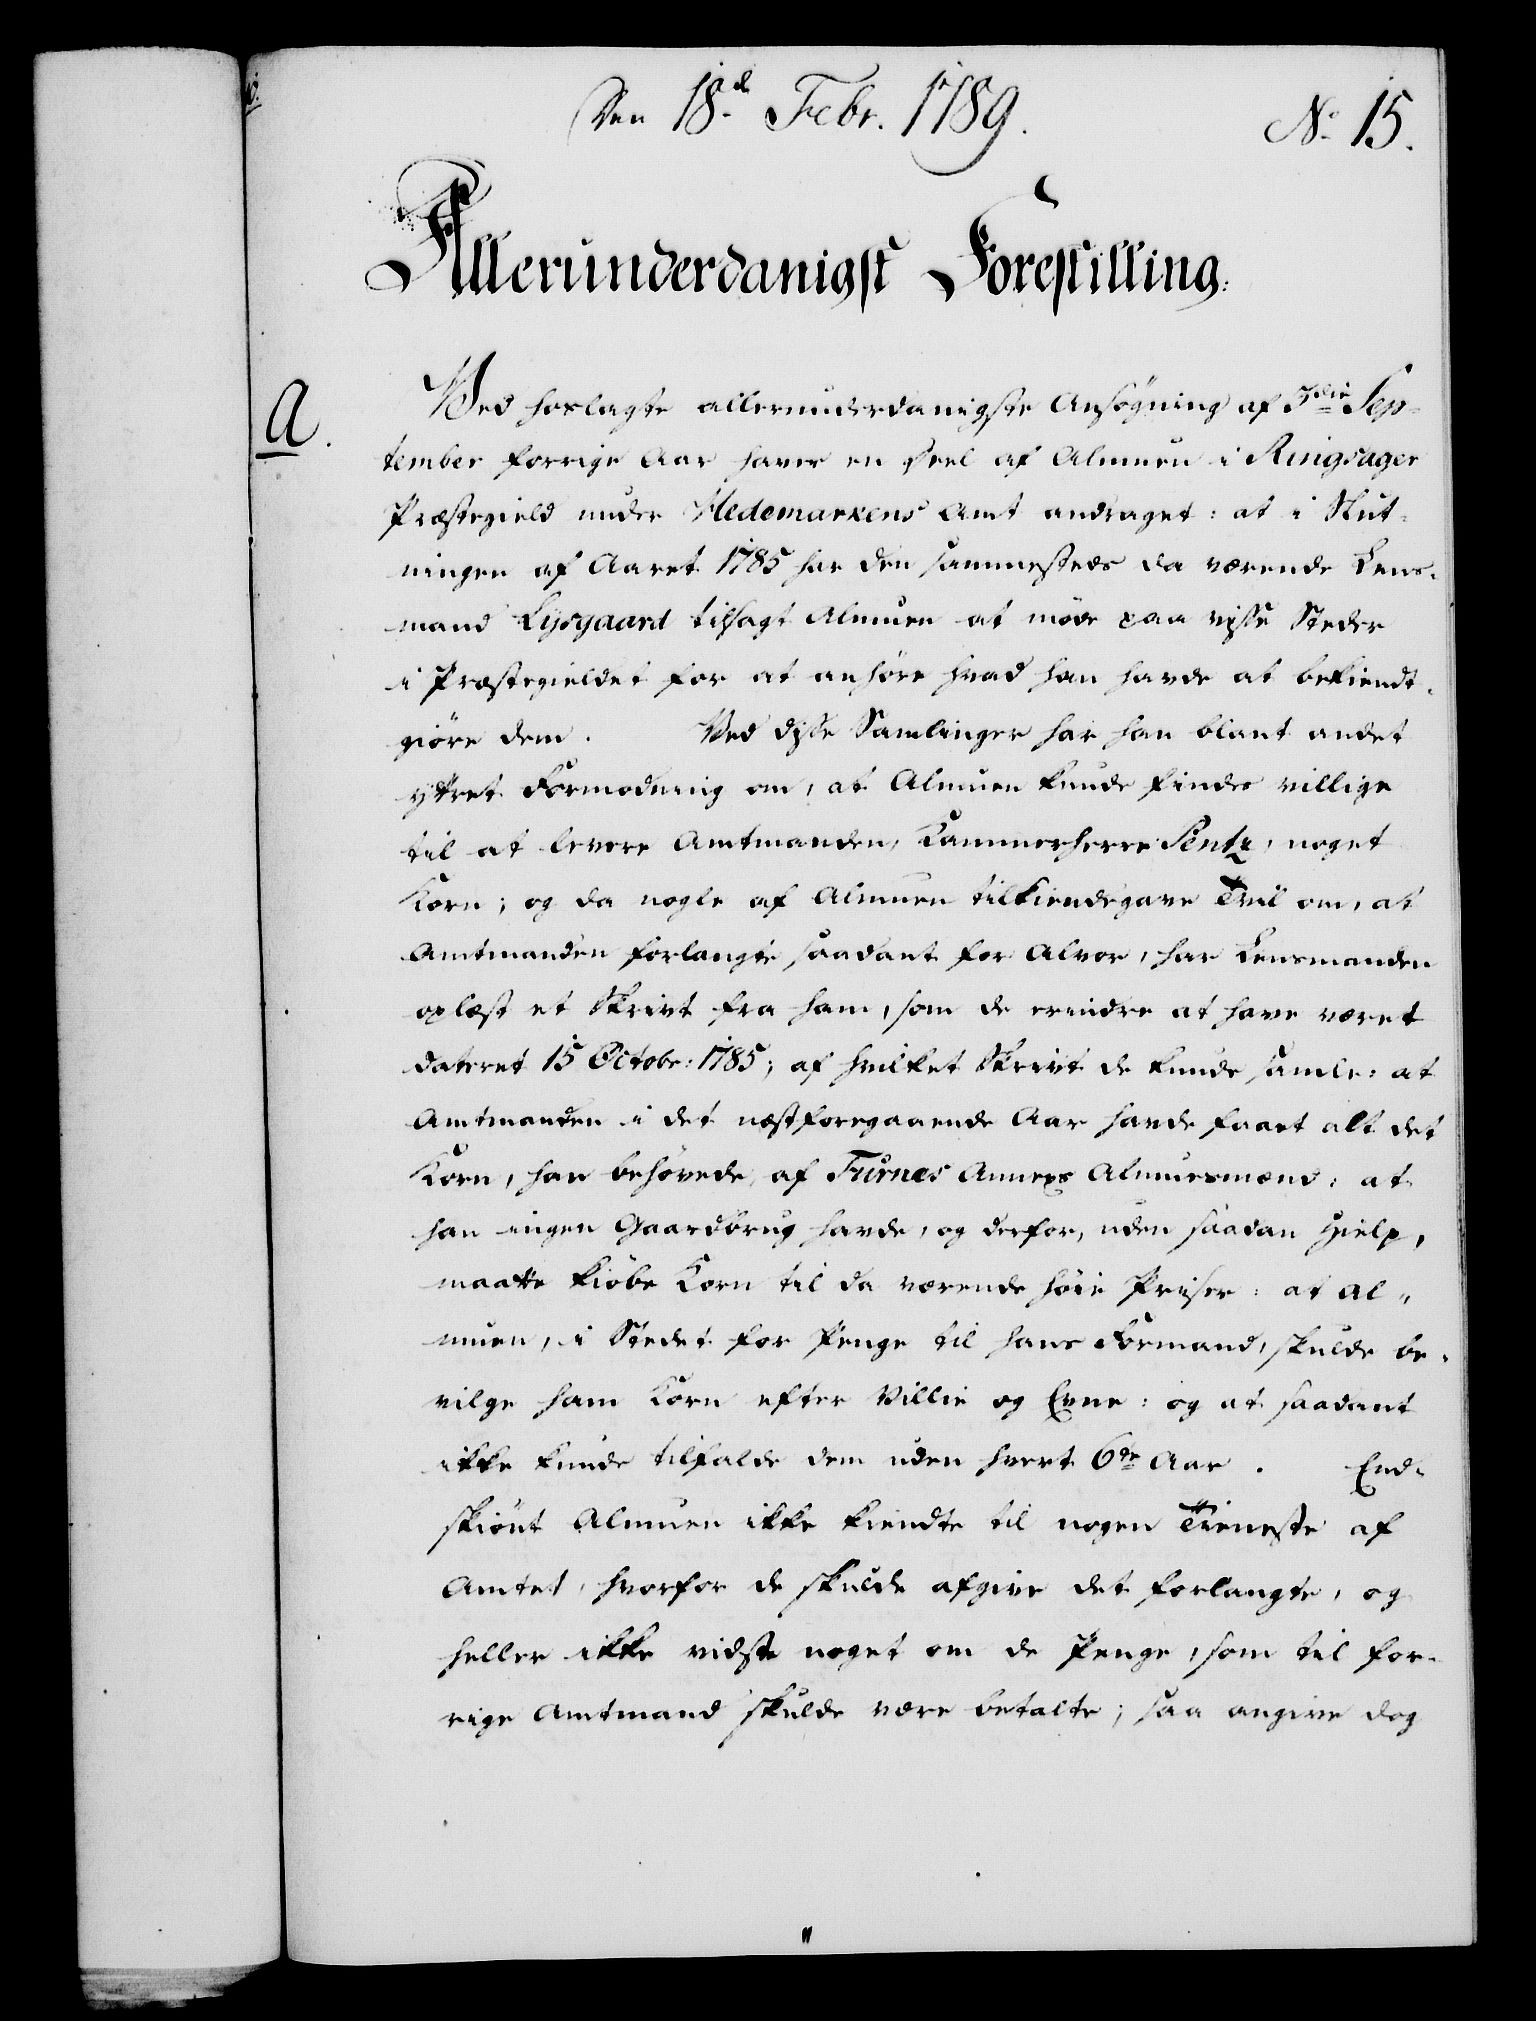 Den 18.de Febr. 1789.
No 15.
Allerunderdanigst Forestilling.
A.
Ved hoslagte allerunderdanigste Ansøgning af 3die Sep-
tember forrige Aar haver en Deel af Almuen i Ringsager
Præstegield under Hedemarkens Amt andraget: at i Slut-
ningen af Aaret 1785 har den sammesteds da værende Lens-
mand Lysgaard tilsagt Almuen at møde paa visse Steder
i Præstegieldet for at anhøre hvad han havde at bekiendt-
giöre dem. Ved disse Samlinger har han blant andet
yttret Formodning om, at Almuen kunde findes villige
til at levere Amtmanden, Kammerherre Sentz, noget
Korn; og da nogle af Almuen tilkiendegave Tvil om, at
Amtmanden forlangte saadant for Alvor, har Lensmanden
oplæst et Skrivt fra ham, som de erindre at have været
dateret 15 Octobr: 1785; af hvilket Skrivt de kunde samle: at
Amtmanden i det næstforegaaende Aar havde faaet alt det
Korn, han behøvede, af Furnes Annexs Almuesmænd: at
han ingen Gaardbrug havde, og derfor, uden saadan Hielp,
maatte kiöbe Korn til da værende høie Priser: at Al-
muen, i Stedet for Penge til hans Formand, skulde be-
vilge ham Korn efter Villie og Evne: og at saadant
ikke kunde tilfalde dem uden hvert 6te Aar. End-
skiönt Almuen ikke kiendte til nogen Tieneste af
Amtet, hvorfor de skulde afgive det forlangte, og
heller ikke vidste noget om de Penge, som til for-
rige Amtmand skulde være betalte; saa angive dog